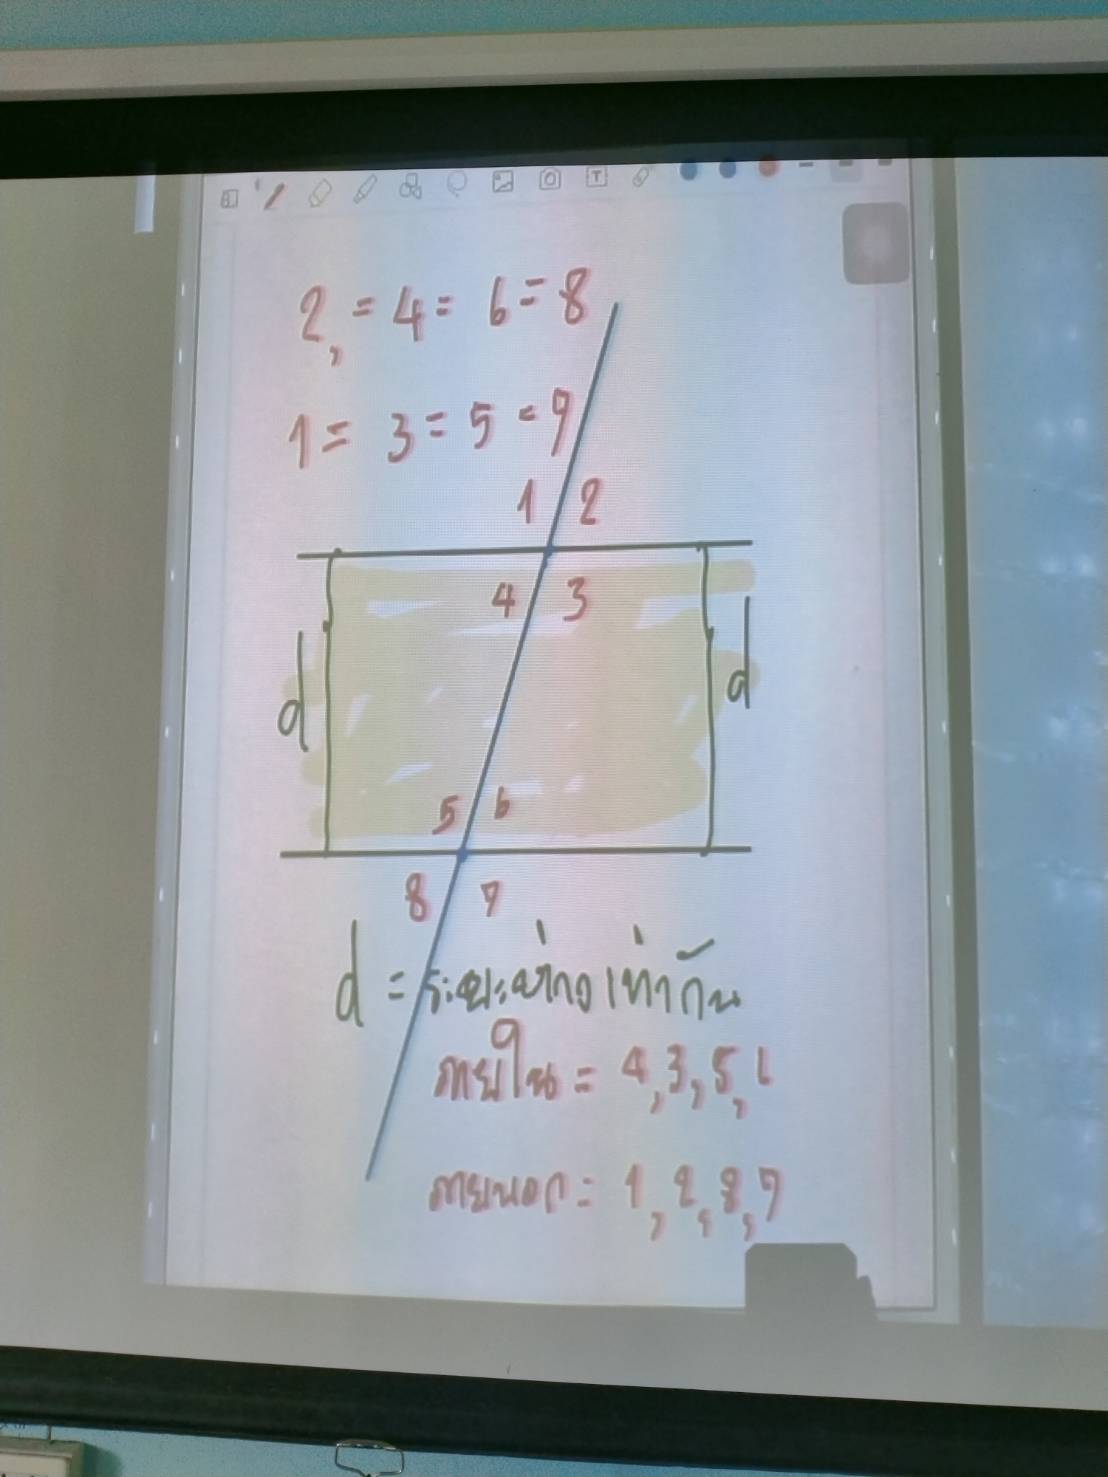 2, = 4 = 6 = 8
1 = 3 = 5 = 7
1 2
4 3
d d
5 6
8 7
d = ระยะห่างเท่ากัน
ภายใน = 4, 3, 5, 6
ภายนอก = 1, 2, 8, 7